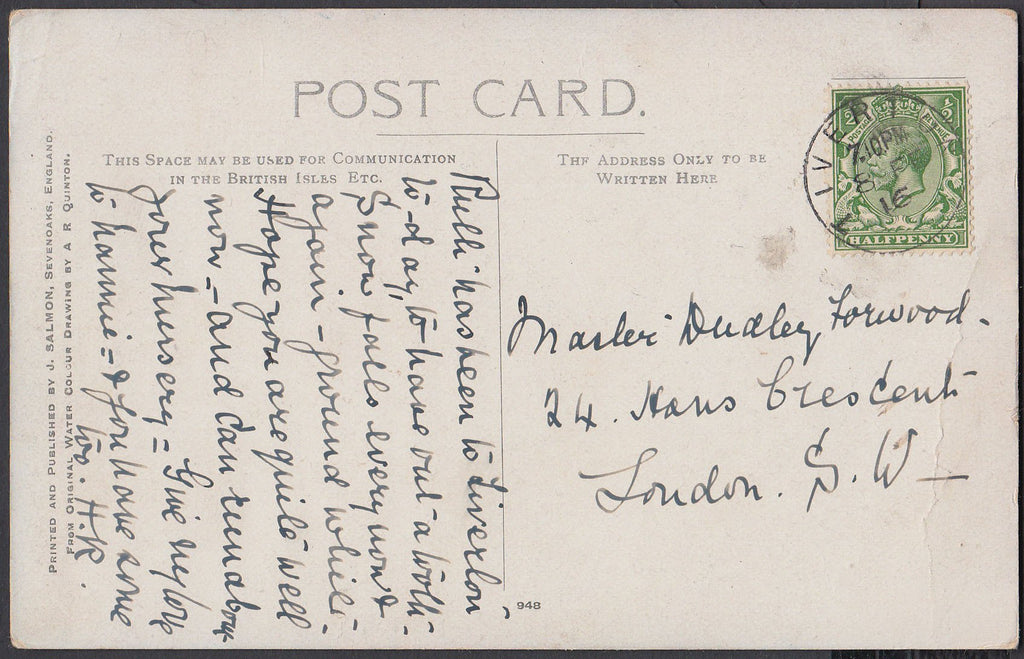 POST CARD.
THIS SPACE MAY BE USED FOR COMMUNICATION
IN THE BRITISH ISLES ETC.
THE ADDRESS ONLY TO BE
WRITTEN HERE
PRINTED AND PUBLISHED BY J. SALMON, SEVENOAKS, ENGLAND.
FROM ORIGINAL WATER COLOUR DRAWING BY A R QUINTON.
has been to Tiverton
to-day, to have out a tooth-
Snow falls every now &
again - ground white -
Hope you are quite well
now - and can run about
your nursery = Give my love
to Nannie = & you have some
too. H.K.
948
½ ½
POSTAGE REVENUE
HALFPENNY
IVER
PM
16
Master Dudley Forwood.
24. Hans Crescent
London. S.W